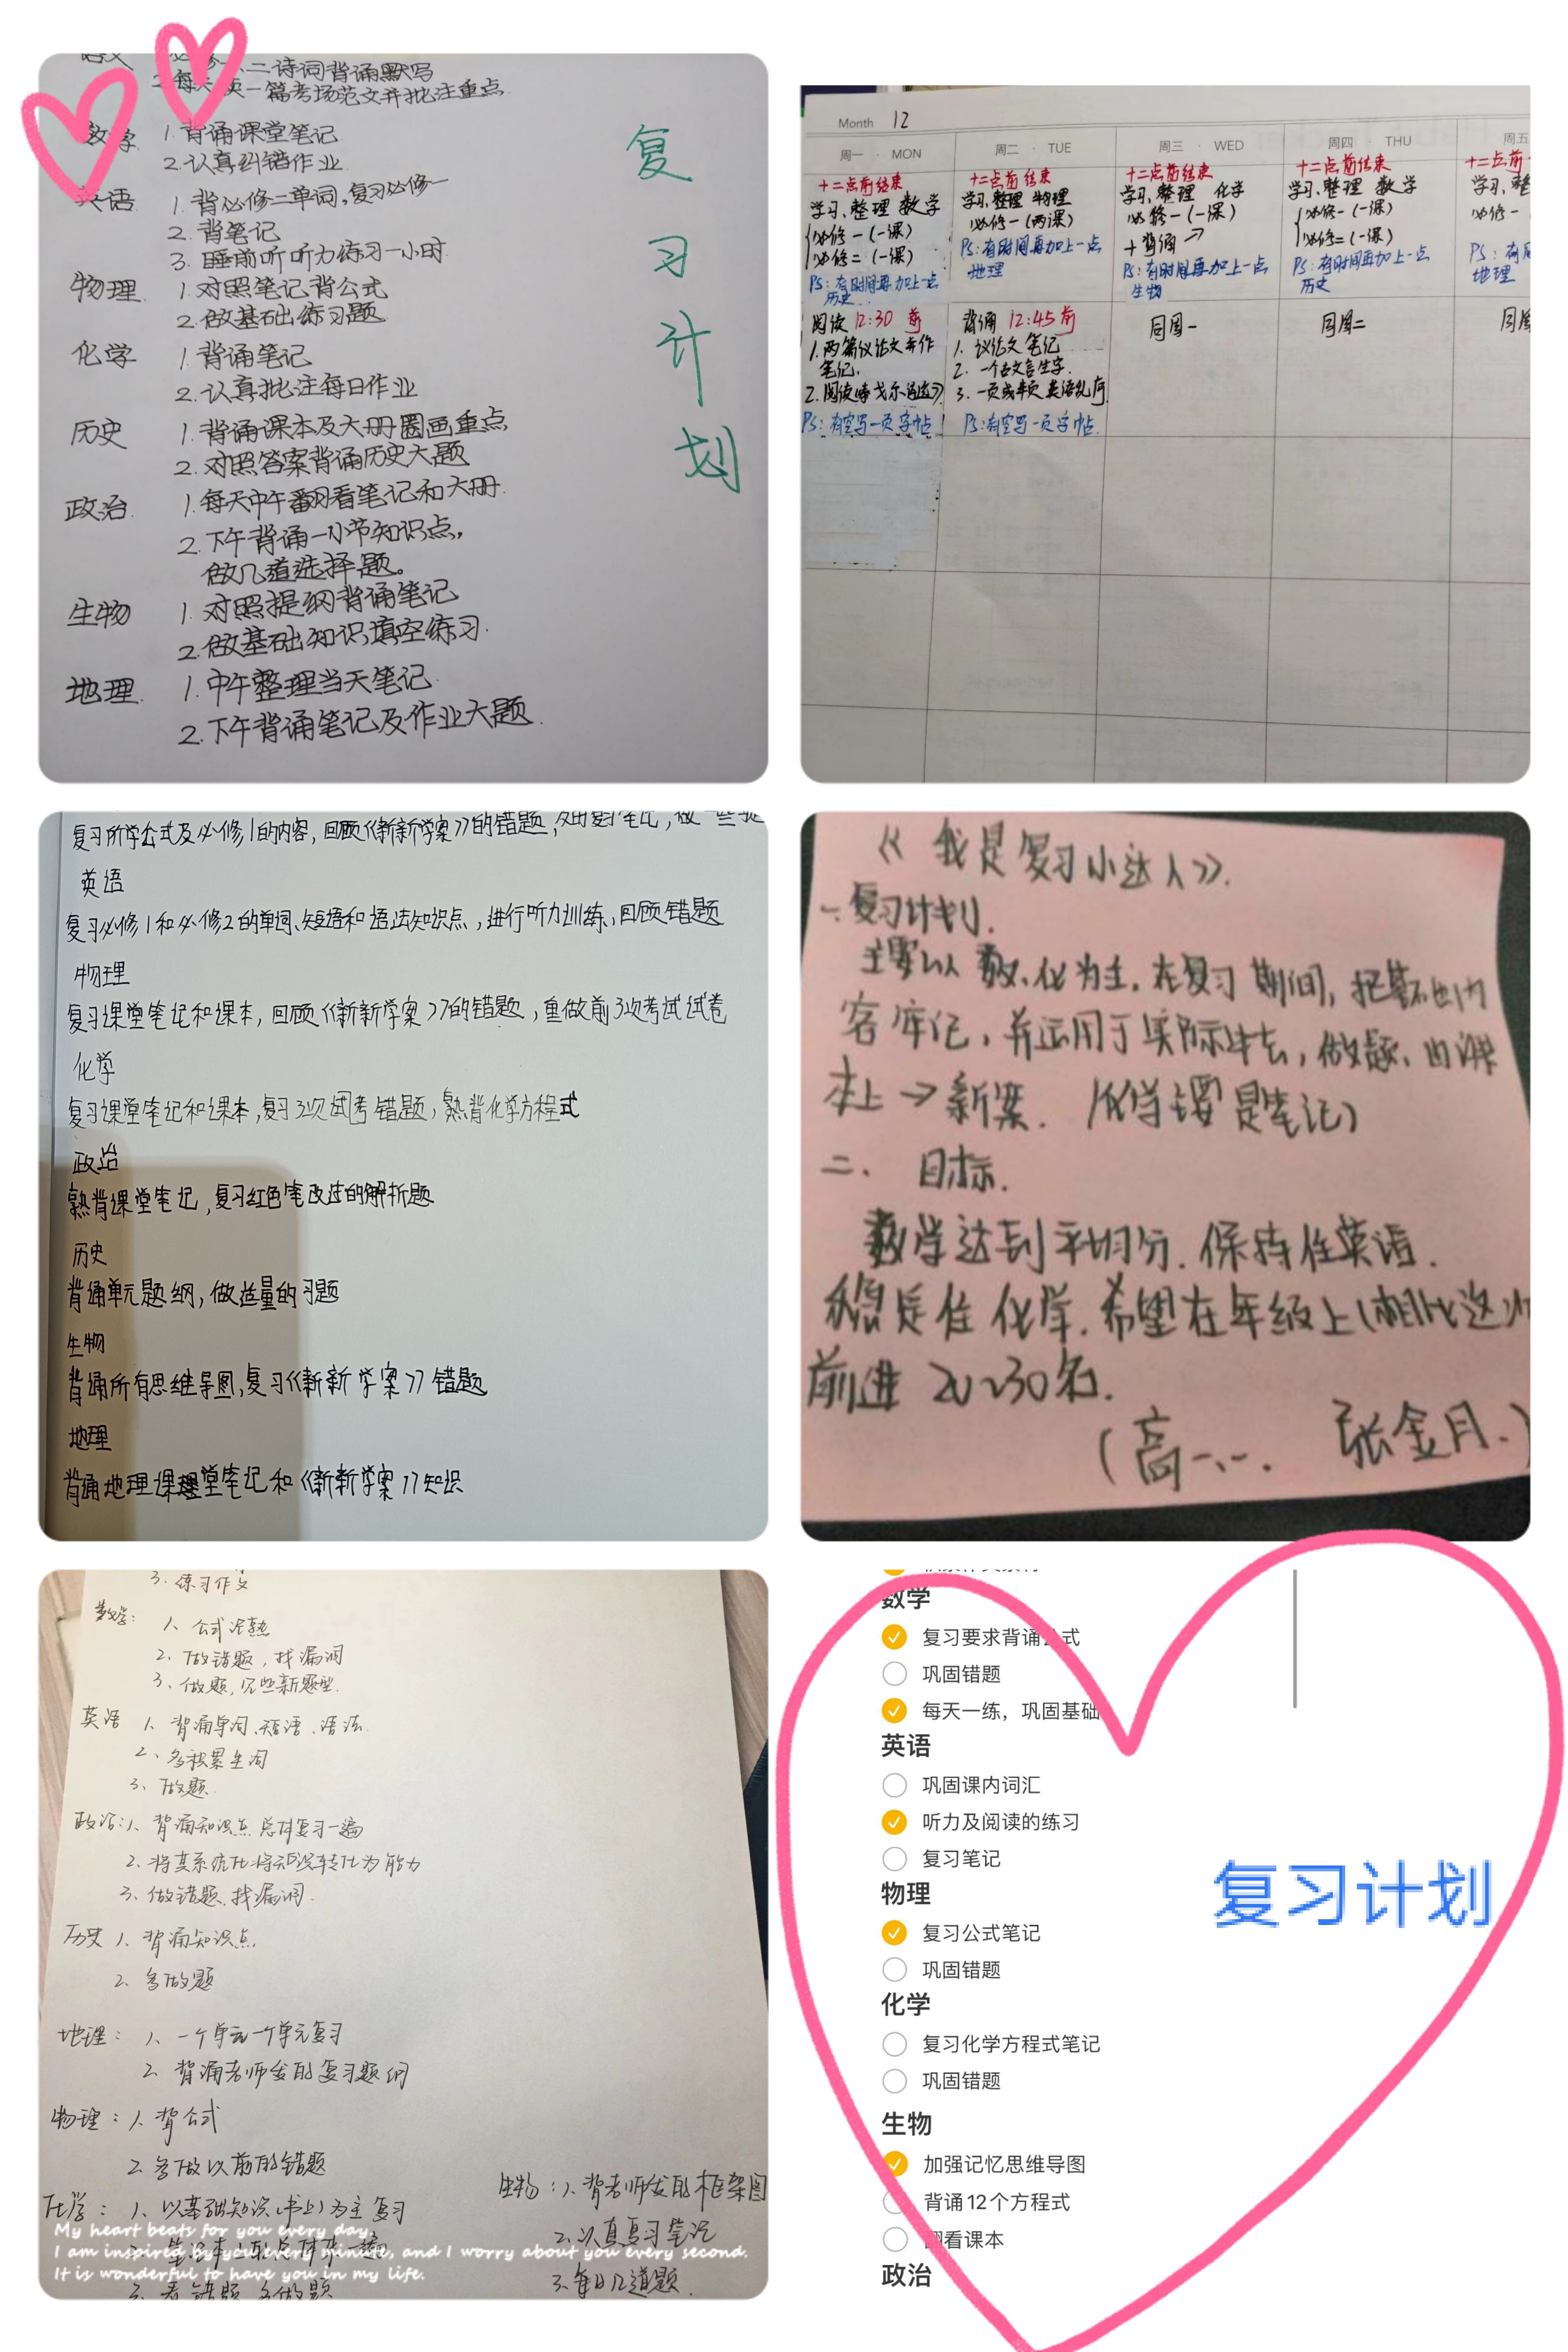 二诗词背诵默写
一篇考场范文并批注重点
复习计划
数学 1. 背诵课堂笔记
2. 认真纠错作业
英语 1. 背必修二单词,复习必修一
2. 背笔记
3. 睡前听听力练习一小时
物理 1. 对照笔记背公式
2. 做基础练习题
化学 1. 背诵笔记
2. 认真批注每日作业
历史 1. 背诵课本及大册圈画重点
2. 对照答案背诵历史大题
政治 1. 每天中午翻看笔记和大册.
2. 下午背诵一小节知识点,
做几道选择题。
生物 1. 对照提纲背诵笔记
2. 做基础知识填空练习.
地理 1. 中午整理当天笔记
2. 下午背诵笔记及作业大题.
Month 12
周一 · MON
十二点前结束
学习、整理 数学
必修一(一课)
必修二(一课)
PS:有时间再加上一点
历史
阅读 12:30 前
1. 两篇议论文并作
笔记.
2. 阅读
PS:有空写一页字帖
周二 · TUE
十二点前结束
学习、整理 物理
必修一(两课)
PS:有时间再加上一点
地理
背诵 12:45前
1. 议论文 笔记
2. 一个古文言生字.
3. 一页或半页 英语
PS:有空写一页字帖.
周三 · WED
十二点前结束
学习、整理 化学
必修一(一课)
+背诵
PS:有时间再加上一点
生物
同周一
周四 · THU
十二点前结束
学习、整理 数学
必修一(一课)
必修二(一课)
PS:有时间再加上一点
历史
同周二
周五
十二点前
学习、整
必修一
PS:有
地理
同周
复习所学公式及必修1的内容,回顾《新新学案》的错题,
英语
复习必修1和必修2的单词、短语和语法知识点,进行听力训练,回顾错题
物理
复习课堂笔记和课本,回顾《新新学案》的错题,重做前3次考试试卷
化学
复习课堂笔记和课本,复习3次试考错题,熟背化学方程式
政治
熟背课堂笔记,复习红色笔改过的解析题
历史
背诵单元题纲,做适量的习题
生物
背诵所有思维导图,复习《新新学案》错题
地理
背诵地理课堂笔记和《新新学案》知识
《我是复习小达人》.
一.复习计划.
主要以数、化为主.在复习期间,把
容牢记,并运用于实际中去,做题、由课
本上→新案.(笔记)
二. 目标.
数学达到平均分.保持住英语.
稳定住化学.希望在年级上(相比这次
前进20~30名.
(高一 张金月.)
3. 练习作文
数学: 1、公式记熟
2. 做错题,找漏洞
3、做题,见些新题型.
英语 1、背诵单词、短语、语法.
2、多积累生词
3、做题
政治:1、背诵知识点 总体复习一遍
2. 将其系统化 将知识转化为能力
3. 做错题、找漏洞.
历史 1、背诵知识点
2、多做题
地理: 1、一个单元一个单元复习
2、背诵老师发的复习题纲
物理:1、背公式
2. 多做以前的错题
化学: 1、以基础知识(书上)为主复习
3. 看错题 多做题
生物:1、背老师发的框架图
2. 认真复习笔记
3. 每日几道题.
My heart beats for you every day,
I am inspired by you every minute, and I worry about you every second.
It is wonderful to have you in my life.
数学
复习要求背诵公式
巩固错题
每天一练,巩固基础
英语
巩固课内词汇
听力及阅读的练习
复习笔记
物理
复习公式笔记
巩固错题
化学
复习化学方程式笔记
巩固错题
生物
加强记忆思维导图
背诵12个方程式
翻看课本
政治
复习计划